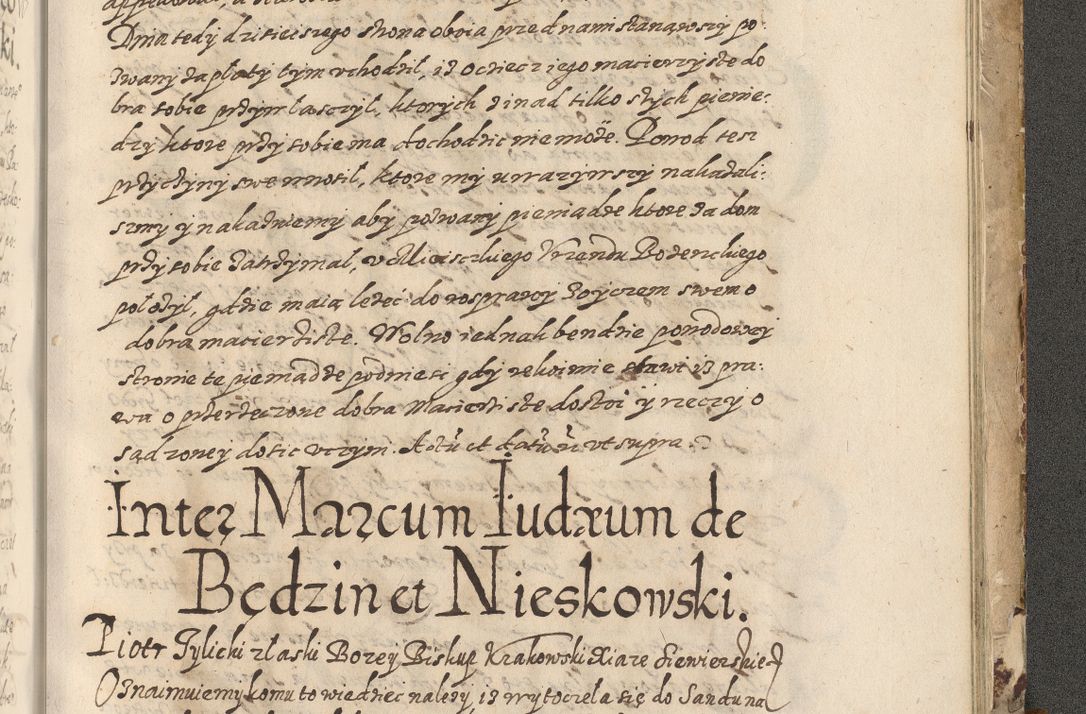 Dnia tedy dzisieiszego strona oboia przed nami stanąwszy po:
zwany zapłaty tym vchodził, iż ociecz iego macierzyste do
bra sobie przywłasczył, ktorych zinąd tilko s tych pienie:
dzy ktore przy sobie ma dochodzic nie może. Powod tesz
przyczyny swe wnosił, ktore my vwazywszy nakazali:
szmy y nakazuiemy aby pozwany pieniądze ktore za dom
przy sobie zatrzymał, v Mieisczkiego Vrzendu Bozenckiego
położył, gdzie maią leżeć do rosprawy z oyczem swem o
dobra macierziste. Wolno iednak bendzie powodowey
stronie te pieniądze podnieść gdy rekoimie stawi iż pra:
wu o przerzeczone dobra Macierziste dostoi y rzeczy o
sądzoney dosic vczyni. Actū et datū ut supra
Inter Marcum Iudæum de
Będzin et Nieskowski.
Piotr Tylicki z łaski Bozey Biskup Krakowski Xiąze Siewierskie
Oznaimuiemy komu to wiedziec nalezy, iż wytoczeła się do Sandu na